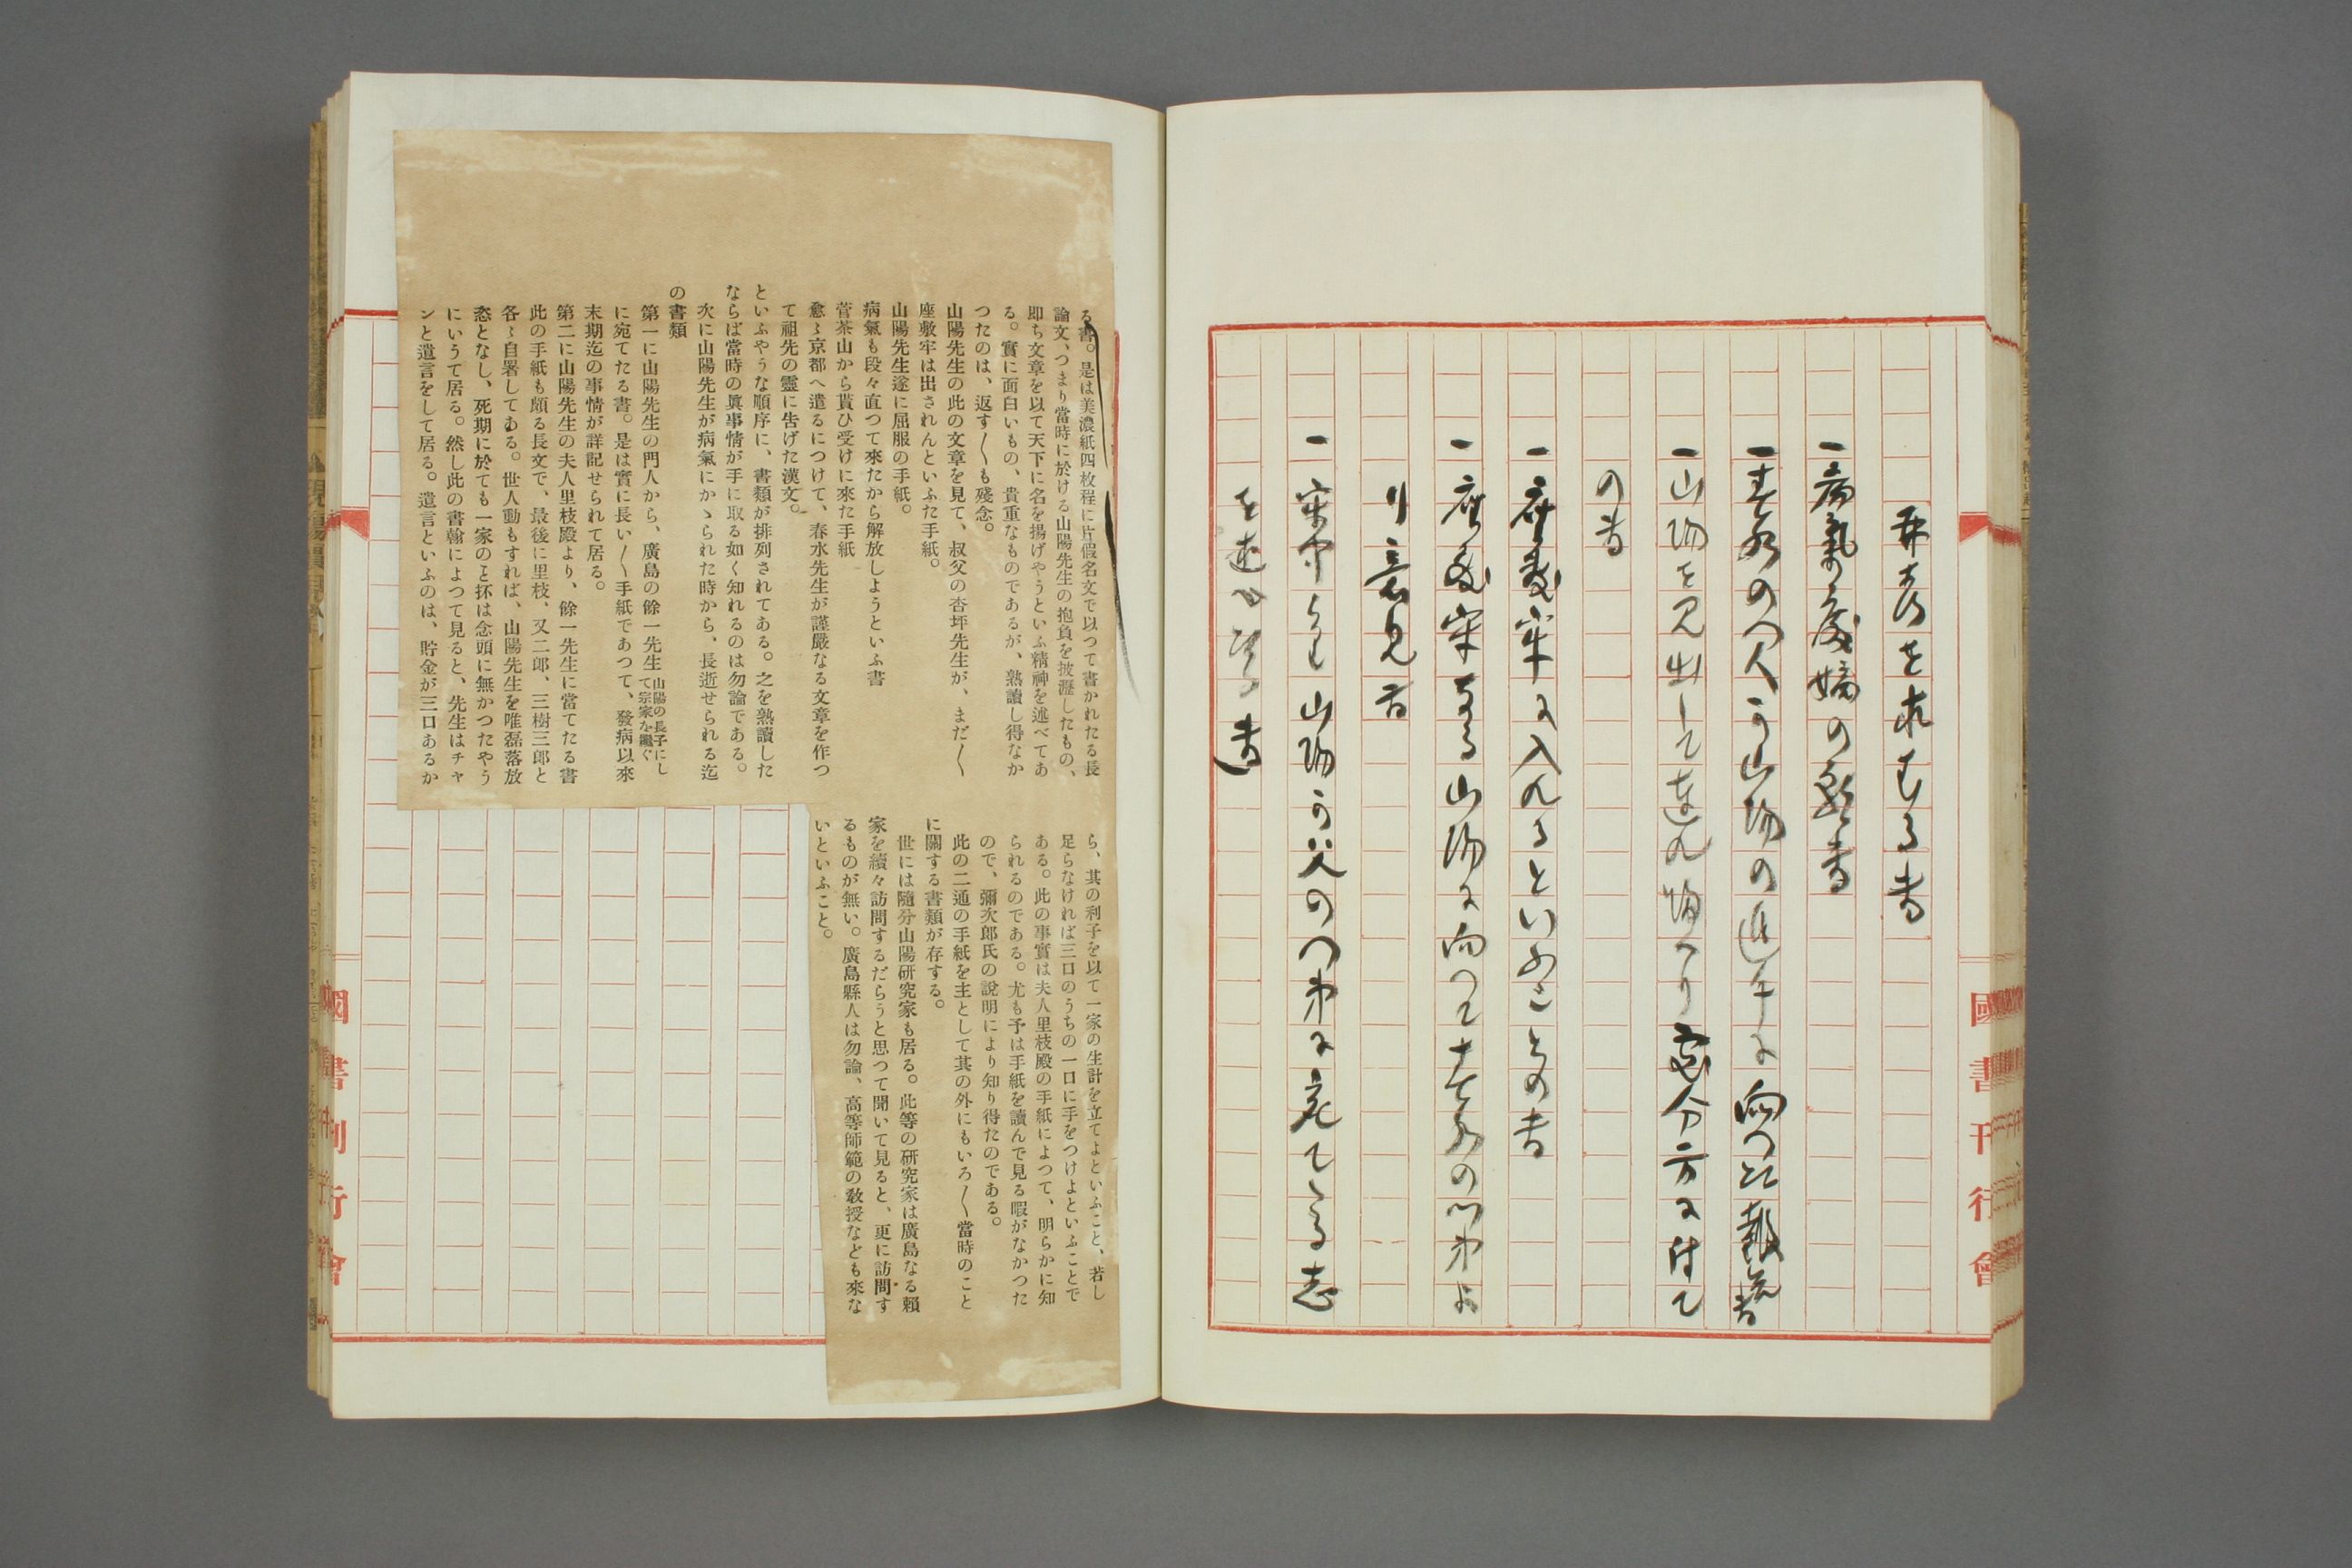 弁方を求むる書
一病氣の廢嫡の願書
一春水の門人の山陽の進午に向つた報告書
一山陽を見出して連れ帰へり處分方に付て
の書
一座敷牢に入れるといふことの書
一座敷牢なる山陽に向つて春水の門弟よ
り意見書
一牢中から山陽が父の門弟に宛てたる志
を述べたる書
國書刊行會
る書。是は美濃紙四枚程に片假名文で以つて書かれたる長
論文、つまり當時に於ける山陽先生の抱負を披瀝したもの、
即ち文章を以て天下に名を揚げやうといふ精神を述べてあ
る。實に面白いもの、貴重なものであるが、熟讀し得なか
つたのは、返す〱も殘念。
山陽先生の此の文章を見て、叔父の杏坪先生が、まだ〱
座敷牢は出されんといふた手紙。
山陽先生遂に屈服の手紙。
病氣も段々直つて來たから解放しようといふ書
菅茶山から貰ひ受けに來た手紙
愈〻京都へ遣るにつけて、春水先生が謹嚴なる文章を作つ
て祖先の靈に告げた漢文。
といふやうな順序に、書類が排列されてある。之を熟讀した
ならば當時の眞事情が手に取る如く知れるのは勿論である。
次に山陽先生が病氣にかゝられた時から、長逝せられる迄
の書類
第一に山陽先生の門人から、廣島の餘一先生山陽の長子にして宗家を繼ぐ
に宛てたる書。是は實に長い〱手紙であつて、發病以來
末期迄の事情が詳記せられて居る。
第二に山陽先生の夫人里枝殿より、餘一先生に當てたる書
此の手紙も頗る長文で、最後に里枝、又二郎、三樹三郎と
各〻自署してある。世人動もすれば、山陽先生を唯磊落放
恣となし、死期に於ても一家のこと抔は念頭に無かつたやう
にいうて居る。然し此の書翰によつて見ると、先生はチャ
ンと遺言をして居る。遺言といふのは、貯金が三口あるか
ら、其の利子を以て一家の生計を立てよといふこと、若し
足らなければ三口のうちの一口に手をつけよといふことで
ある。此の事實は夫人里枝殿の手紙によつて、明らかに知
られるのである。尤も予は手紙を讀んで見る暇がなかつた
ので、彌次郎氏の說明により知り得たのである。
此の二通の手紙を主として其の外にもいろ〱當時のこと
に關する書類が存する。
世には隨分山陽研究家も居る。此等の研究家は廣島なる賴
家を續々訪問するだらうと思つて聞いて見ると、更に訪問す
るものが無い。廣島縣人は勿論、高等師範の敎授なども來な
いといふこと。
國書刊行會